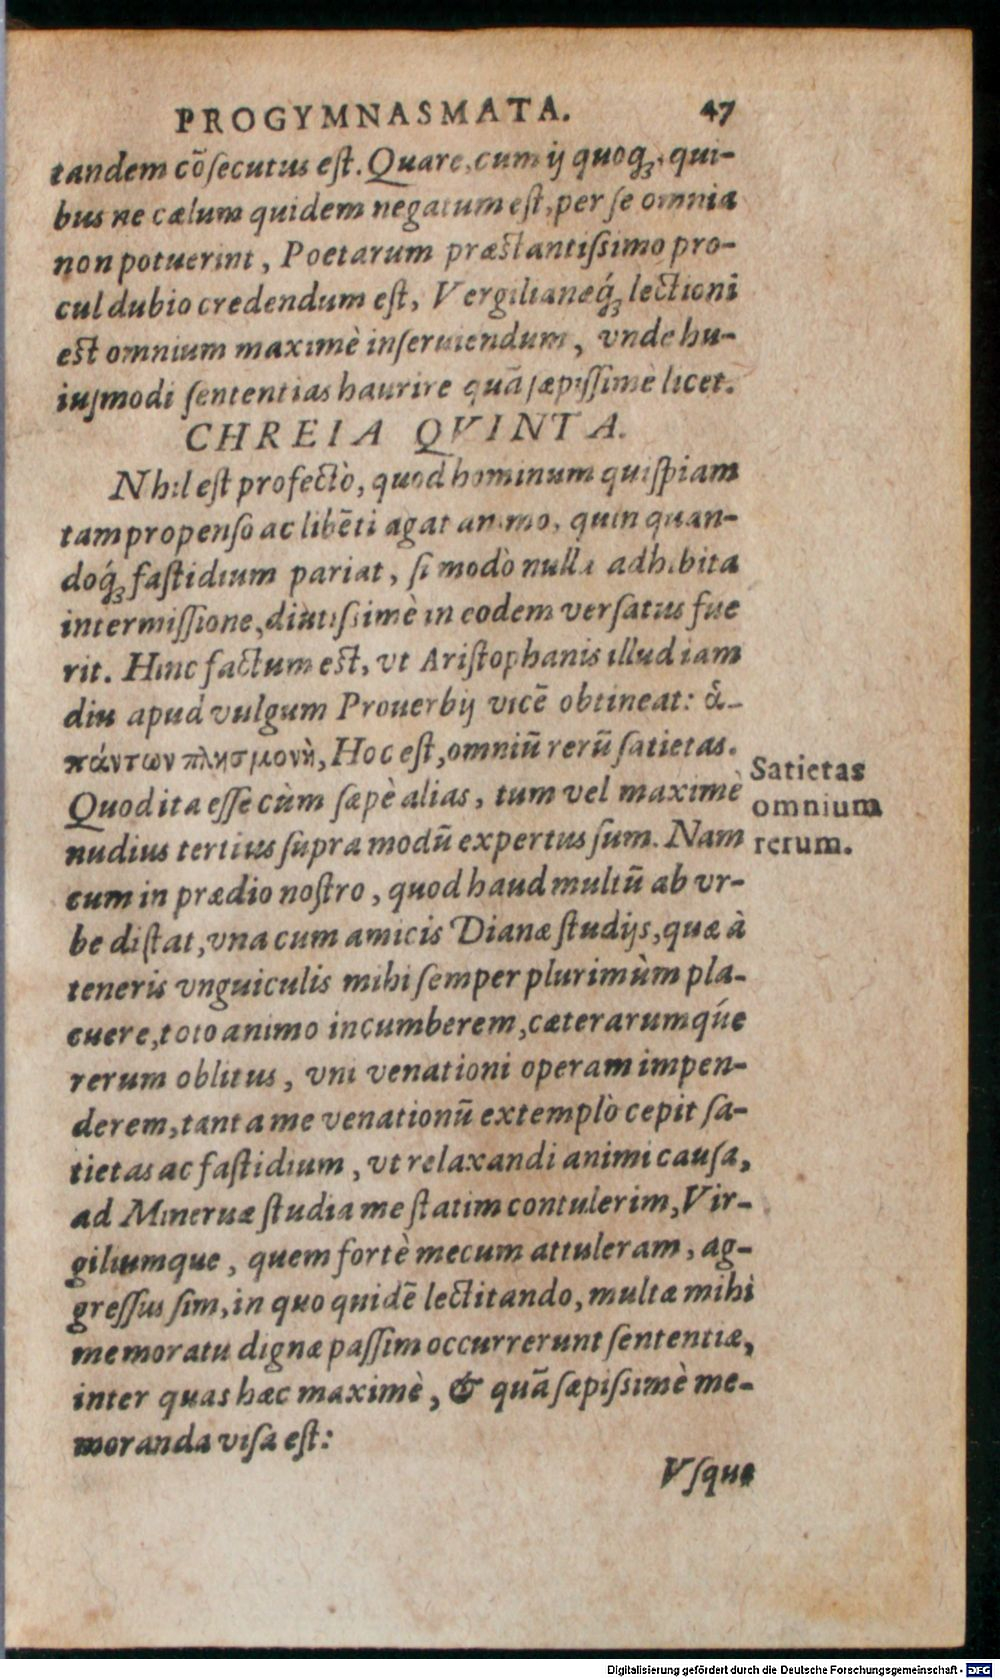 PROGYMNASMATA. 47
tandem cōsecutus est. Quare, cum ij quoq;, qui-
bus ne cælum quidem negatum est, per se omnia
non potuerint, Poetarum præstantissimo pro-
cul dubio credendum est, Vergilianæq́; lectioni
est omnium maximè inseruiendum, vnde hu-
iusmodi sententias haurire quā sæpissimè licet.
CHREIA QVINTA.
Nihil est profectò, quod hominum quispiam
tam propenso ac libēti agat animo, quin quan-
doq́; fastidium pariat, si modò nulla adhibita
intermissione, diutissimè in eodem versatus fue
rit. Hinc factum est, vt Aristophanis illud iam
diu apud vulgum Prouerbij vicē obtineat: ἁ-
πάντων πλησμονὴ, Hoc est, omniū rerū satietas.
Quod ita esse cùm sæpè alias, tum vel maximè
nudius tertius supra modū expertus sum. Nam
cum in prædio nostro, quod haud multū ab vr-
be distat, vna cum amicis Dianæ studijs, quæ à
teneris vnguiculis mihi semper plurimùm pla-
cuere, toto animo incumberem, cæterarumq́ue
rerum oblitus, vni venationi operam impen-
derem, tanta me venationū extemplò cepit sa-
tietas ac fastidium, vt relaxandi animi causa,
ad Mineruæ studia me statim contulerim, Vir-
giliumque, quem fortè mecum attuleram, ag-
gressus sim, in quo quidē lectitando, multæ mihi
memoratu dignæ passim occurrerunt sententiæ,
inter quas hæc maximè, & quā sæpissimè me-
moranda visa est:
Vsque
Satietas
omnium
rerum.
Digitalisierung gefördert durch die Deutsche Forschungsgemeinschaft - DFG